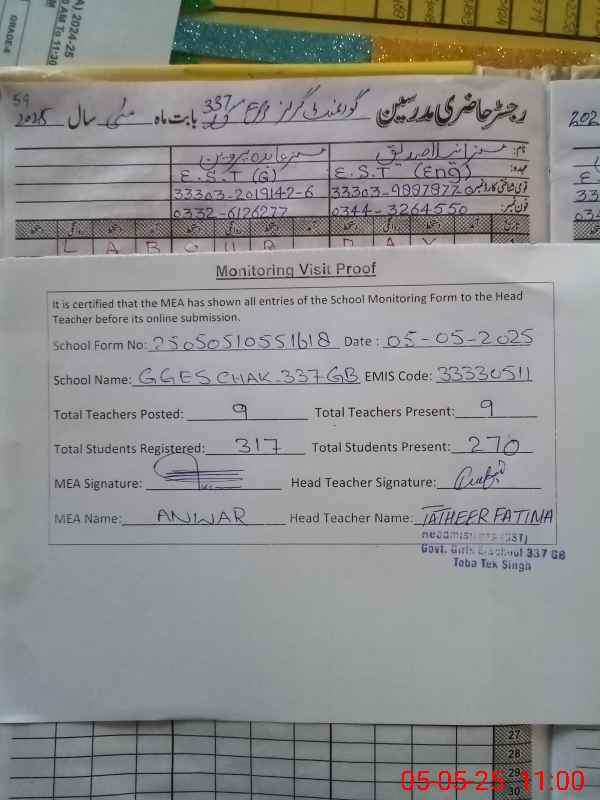 A) 2024-25
0 AM To 11:30
GRADE-4
59
رجسٹر حاضری مدرسین گورنمنٹ گرلز 337 بابت ماہ مئی سال 2025
202
نام: مسز انیلا صدیق مسز عابدہ پروین
عہدہ: E.S.T (Eng) E.S.T (G)
قومی شناختی کارڈ نمبر 33303-2019142-6
فون نمبر: 0344-3264550 0332-6126277
L A B O U R D A Y
Monitoring Visit Proof
It is certified that the MEA has shown all entries of the School Monitoring Form to the Head
Teacher before its online submission.
School Form No: 25050510551618 Date : 05-05-2025
School Name: GGES CHAK.337GB EMIS Code: 33330511
Total Teachers Posted: 9 Total Teachers Present: 9
Total Students Registered: 317 Total Students Present: 270
MEA Signature: Head Teacher Signature:
MEA Name: ANWAR Head Teacher Name: TATHEER FATIMA
Headmistress (SST)
Govt. Girls E/school 337 GB
Toba Tek Singh
27
28
29
30
05-05-25 11:00